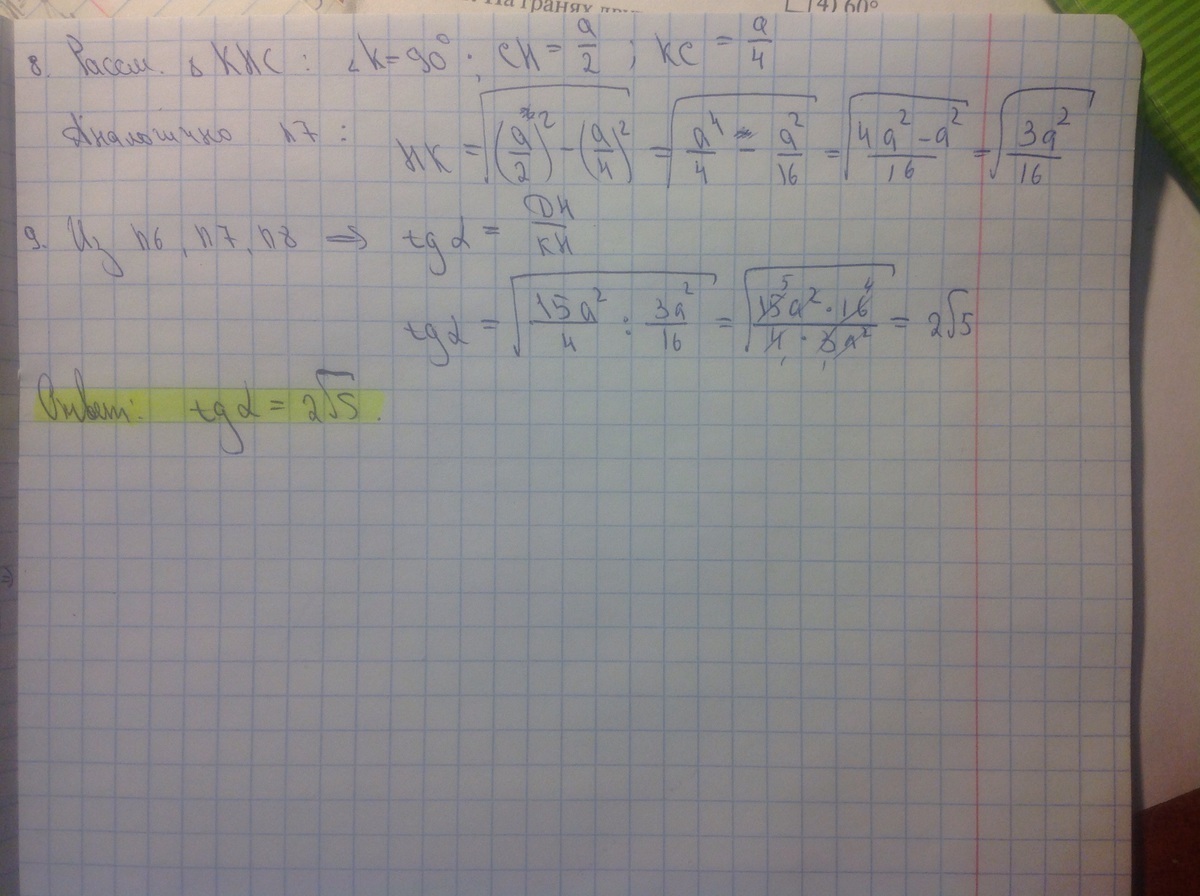 На гранях
(4) 60°
8. Рассм. Δ KHC : ∠K=90° ; CH = a/2 ; KC = a/4
Аналогично п7 : HK = √((a/2)² - (a/4)²) = √(a⁴/4 - a²/16) = √((4a² - a²)/16) = √(3a²/16)
9. Из п6, п7, п8 ⇒ tg α = DH/KH
tg α = √(15a²/4 : 3a²/16) = √((15a² · 16)/(4 · 3a²)) = 2√5
Ответ: tg α = 2√5.